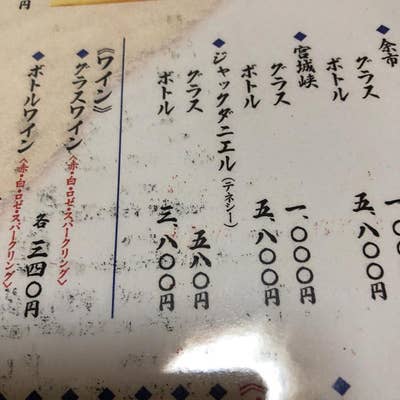 余市
グラス 一、〇
ボトル 五、八〇〇円
◆宮城峡
グラス 一、〇〇〇円
ボトル 五、八〇〇円
◆ジャックダニエル(テネシー)
グラス 五八〇円
ボトル 三、八〇〇円
《ワイン》
◆グラスワイン〈赤・白・ロゼ・スパークリング〉
◆ボトルワイン〈赤・白・ロゼ・スパークリング〉
各 三四〇円
円